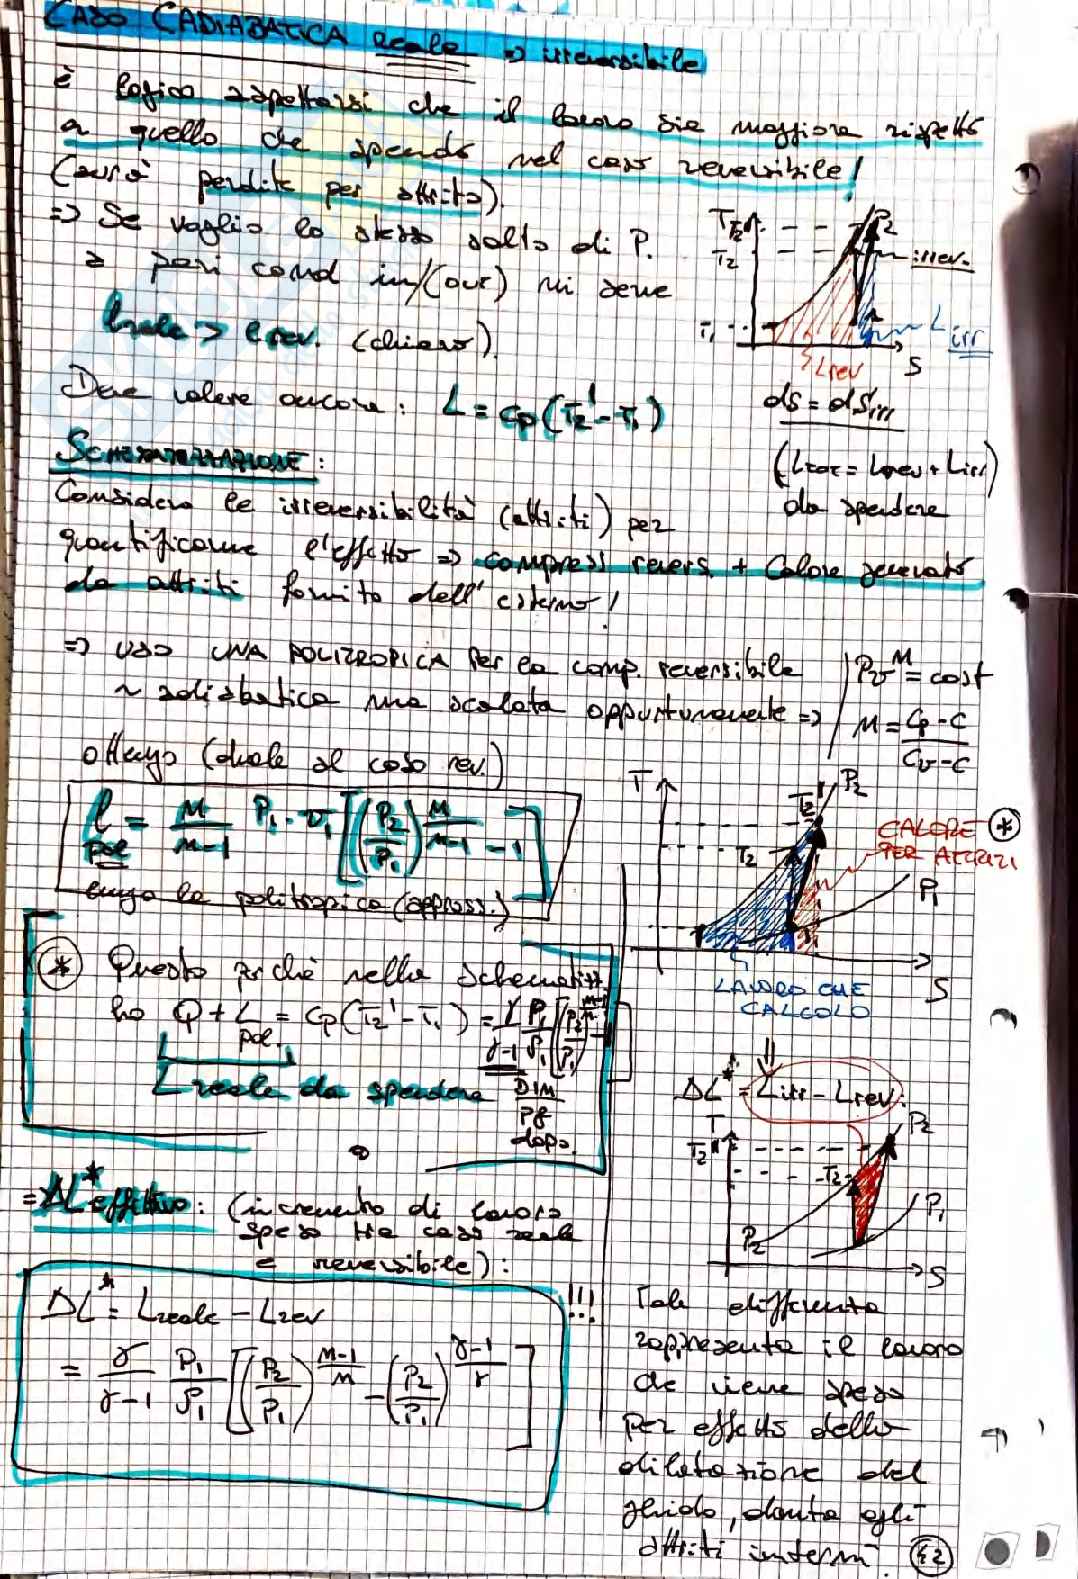 CASO ADIABATICA reale => irreversibile
è logico aspettarsi che il lavoro sia maggiore rispetto
a quello che spendo nel caso reversibile!
(avrò perdite per attrito).
=> Se voglio lo stesso salto di P.
a pari cond in/(out) mi serve
lreale > lrev. (chiaro).
Deve valere ancora: L = cp(T2' - T1)
T2'
T2
T1
P2
irrev.
Lirr
Lrev
S
ds = dsirr
(Ltot = Lrev + Lirr)
da spendere
SCHEMATIZZAZIONE:
Considero le irreversibilità (attriti) per
quantificarne l'effetto => compress revers + Calore generato
da attriti fornito dall'esterno!
=> uso UNA POLITROPICA per la comp. reversibile
~ adiabatica ma scalata opportunamente =>
Pv^M = cost
M = (cp - c)/(cv - c)
ottengo (duale al caso rev.)
l pol = M/(M-1) P1 · v1 [(P2/P1)^(M/(M-1)) - 1]
lungo la politropica (appross.)
T
T2'
P2
T2
CALORE
PER ATTRITI
*
P1
S
LAVORO CHE
CALCOLO
* Questo perchè nella schematizz.
ho Q + L pol. = cp(T2' - T1) = γ/(γ-1) P1/ρ1 [(P2/P1)^((M-1)/M) - 1]
L reale da spendere
DIM
Pg
dopo.
ΔL* = Lirr - Lrev.
T
T2'
T2
P2
P1
P2
S
=> ΔL* effettivo: (incremento di lavoro
speso tra caso reale
e reversibile):
ΔL* = Lreale - Lrev
= γ/(γ-1) P1/ρ1 [(P2/P1)^((M-1)/M) - (P2/P1)^((γ-1)/γ)]
!!!
Tale differenza
rappresenta il lavoro
che viene speso
per effetto della
dilatazione del
fluido, dovuta agli
attriti interni
42